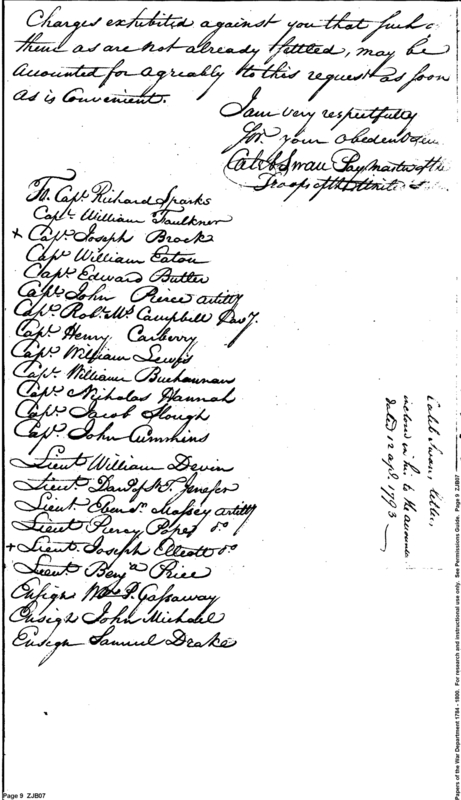 Charges exhibited against you that such of
them as are not already settled, may be
accounted for agreably to this request as soon
as is Convenient.
I am very respectfully
Sir your obedient
Caleb Swan Paymaster of the
Troops of the United S
To. Capt. Richard Sparks
Capt. William Faulkner
+ Capt. Joseph Brock
Capt. William Eaton
Capt. Edward Butler
Capt. John Pierce artilly
Capt. Robt. Ms. Campbell
Capt. Henry Carberry
Capt. William Lewis
Capt. William Buchannan
Capt. Nicholas Hannah
Capt. Jacob Slough
Capt. John Cummins
Lieut. William Devin
Lieut. Danl. of St. T. Jenefer
Lieut. Ebenr. Massey artilly
Lieut Piercy Pope do
+ Lieut. Joseph Elliott do
Lieut. Benja. Price
Ensign Wm. P. Gassaway
Ensign John Michael
Ensign Samuel Drake
Caleb Swans, letter,
inclosed in his to the accountt
dated 12 apl. 1793
Page 9 ZJB07
Papers of the War Department 1784 - 1800. For research and instructional use only. See Permissions Guide. Page 9 ZJB07